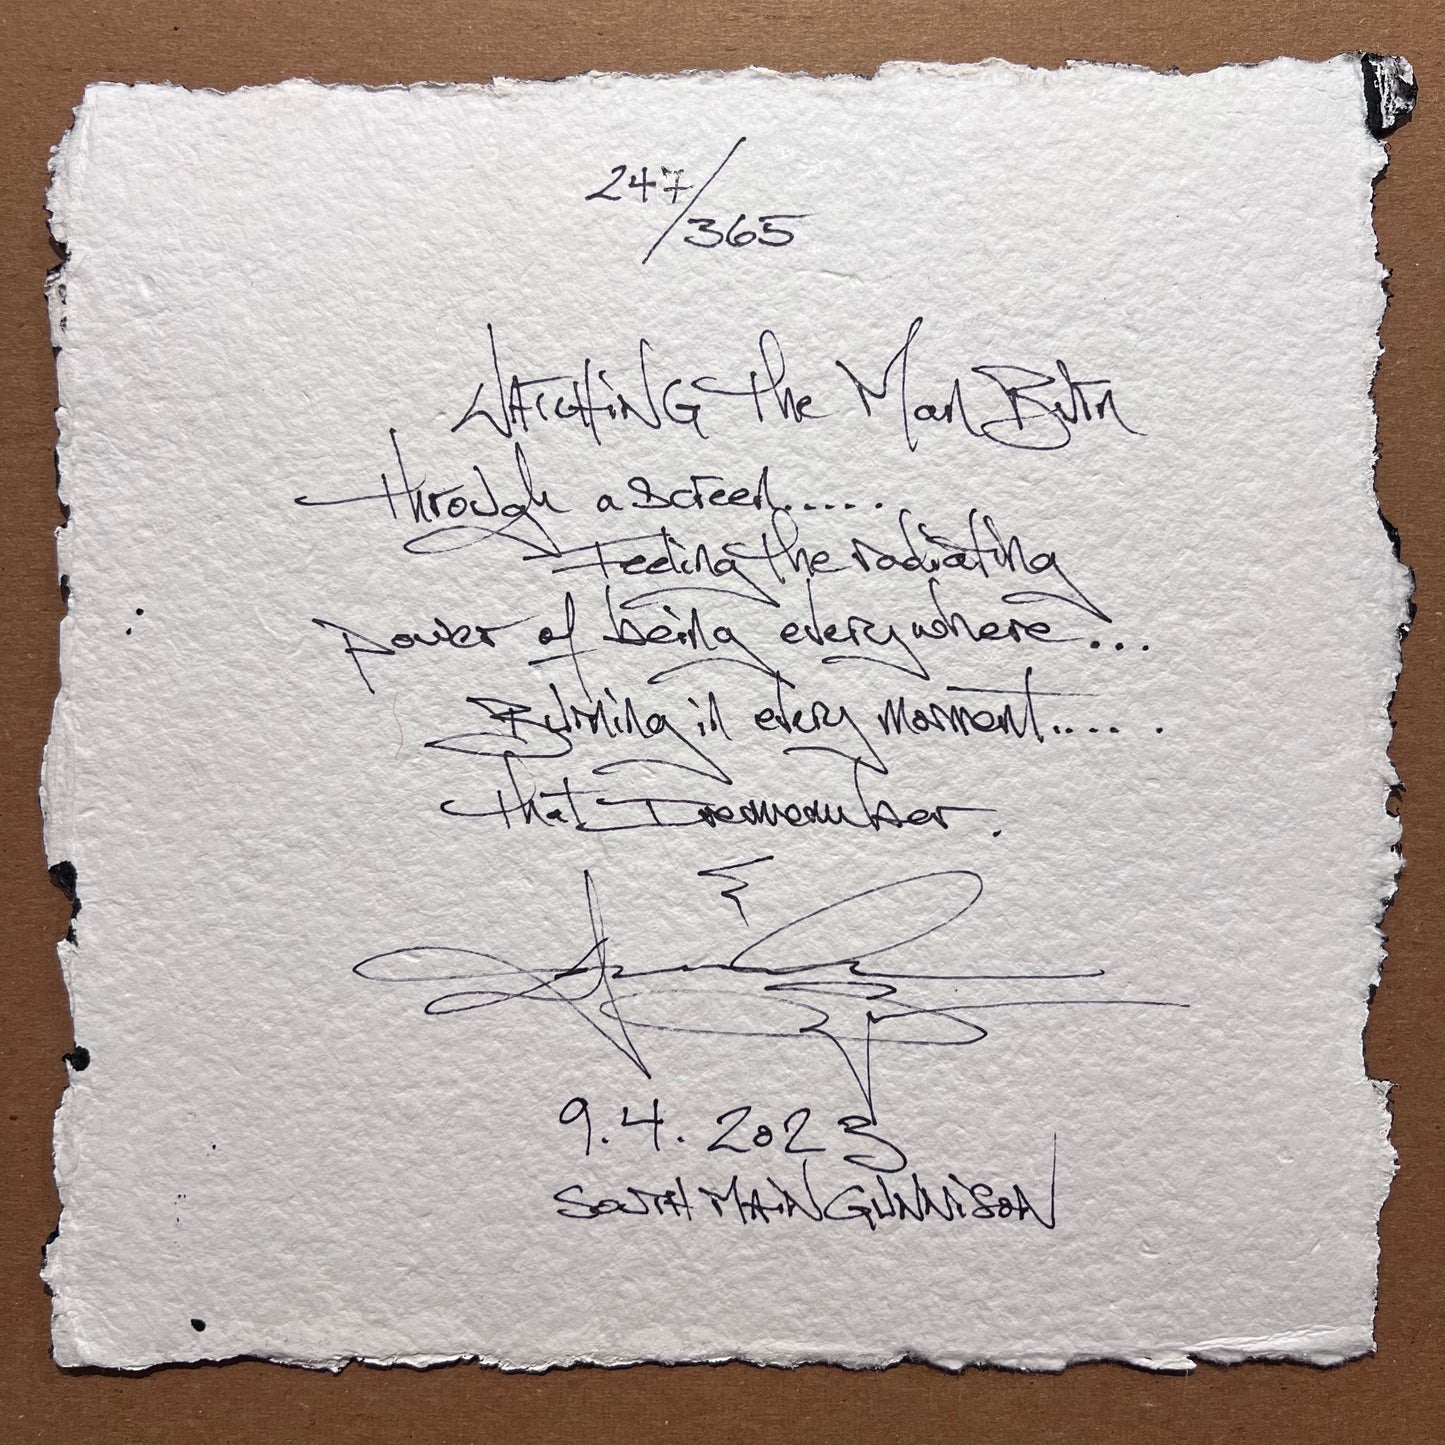 247/365
WATCHING the Man Burn
through a screen......
Feeling the radiating
power of being everywhere...
Burning in every moment.....
that I remember.
9.4.2023
SOUTH MAIN GUNNISON